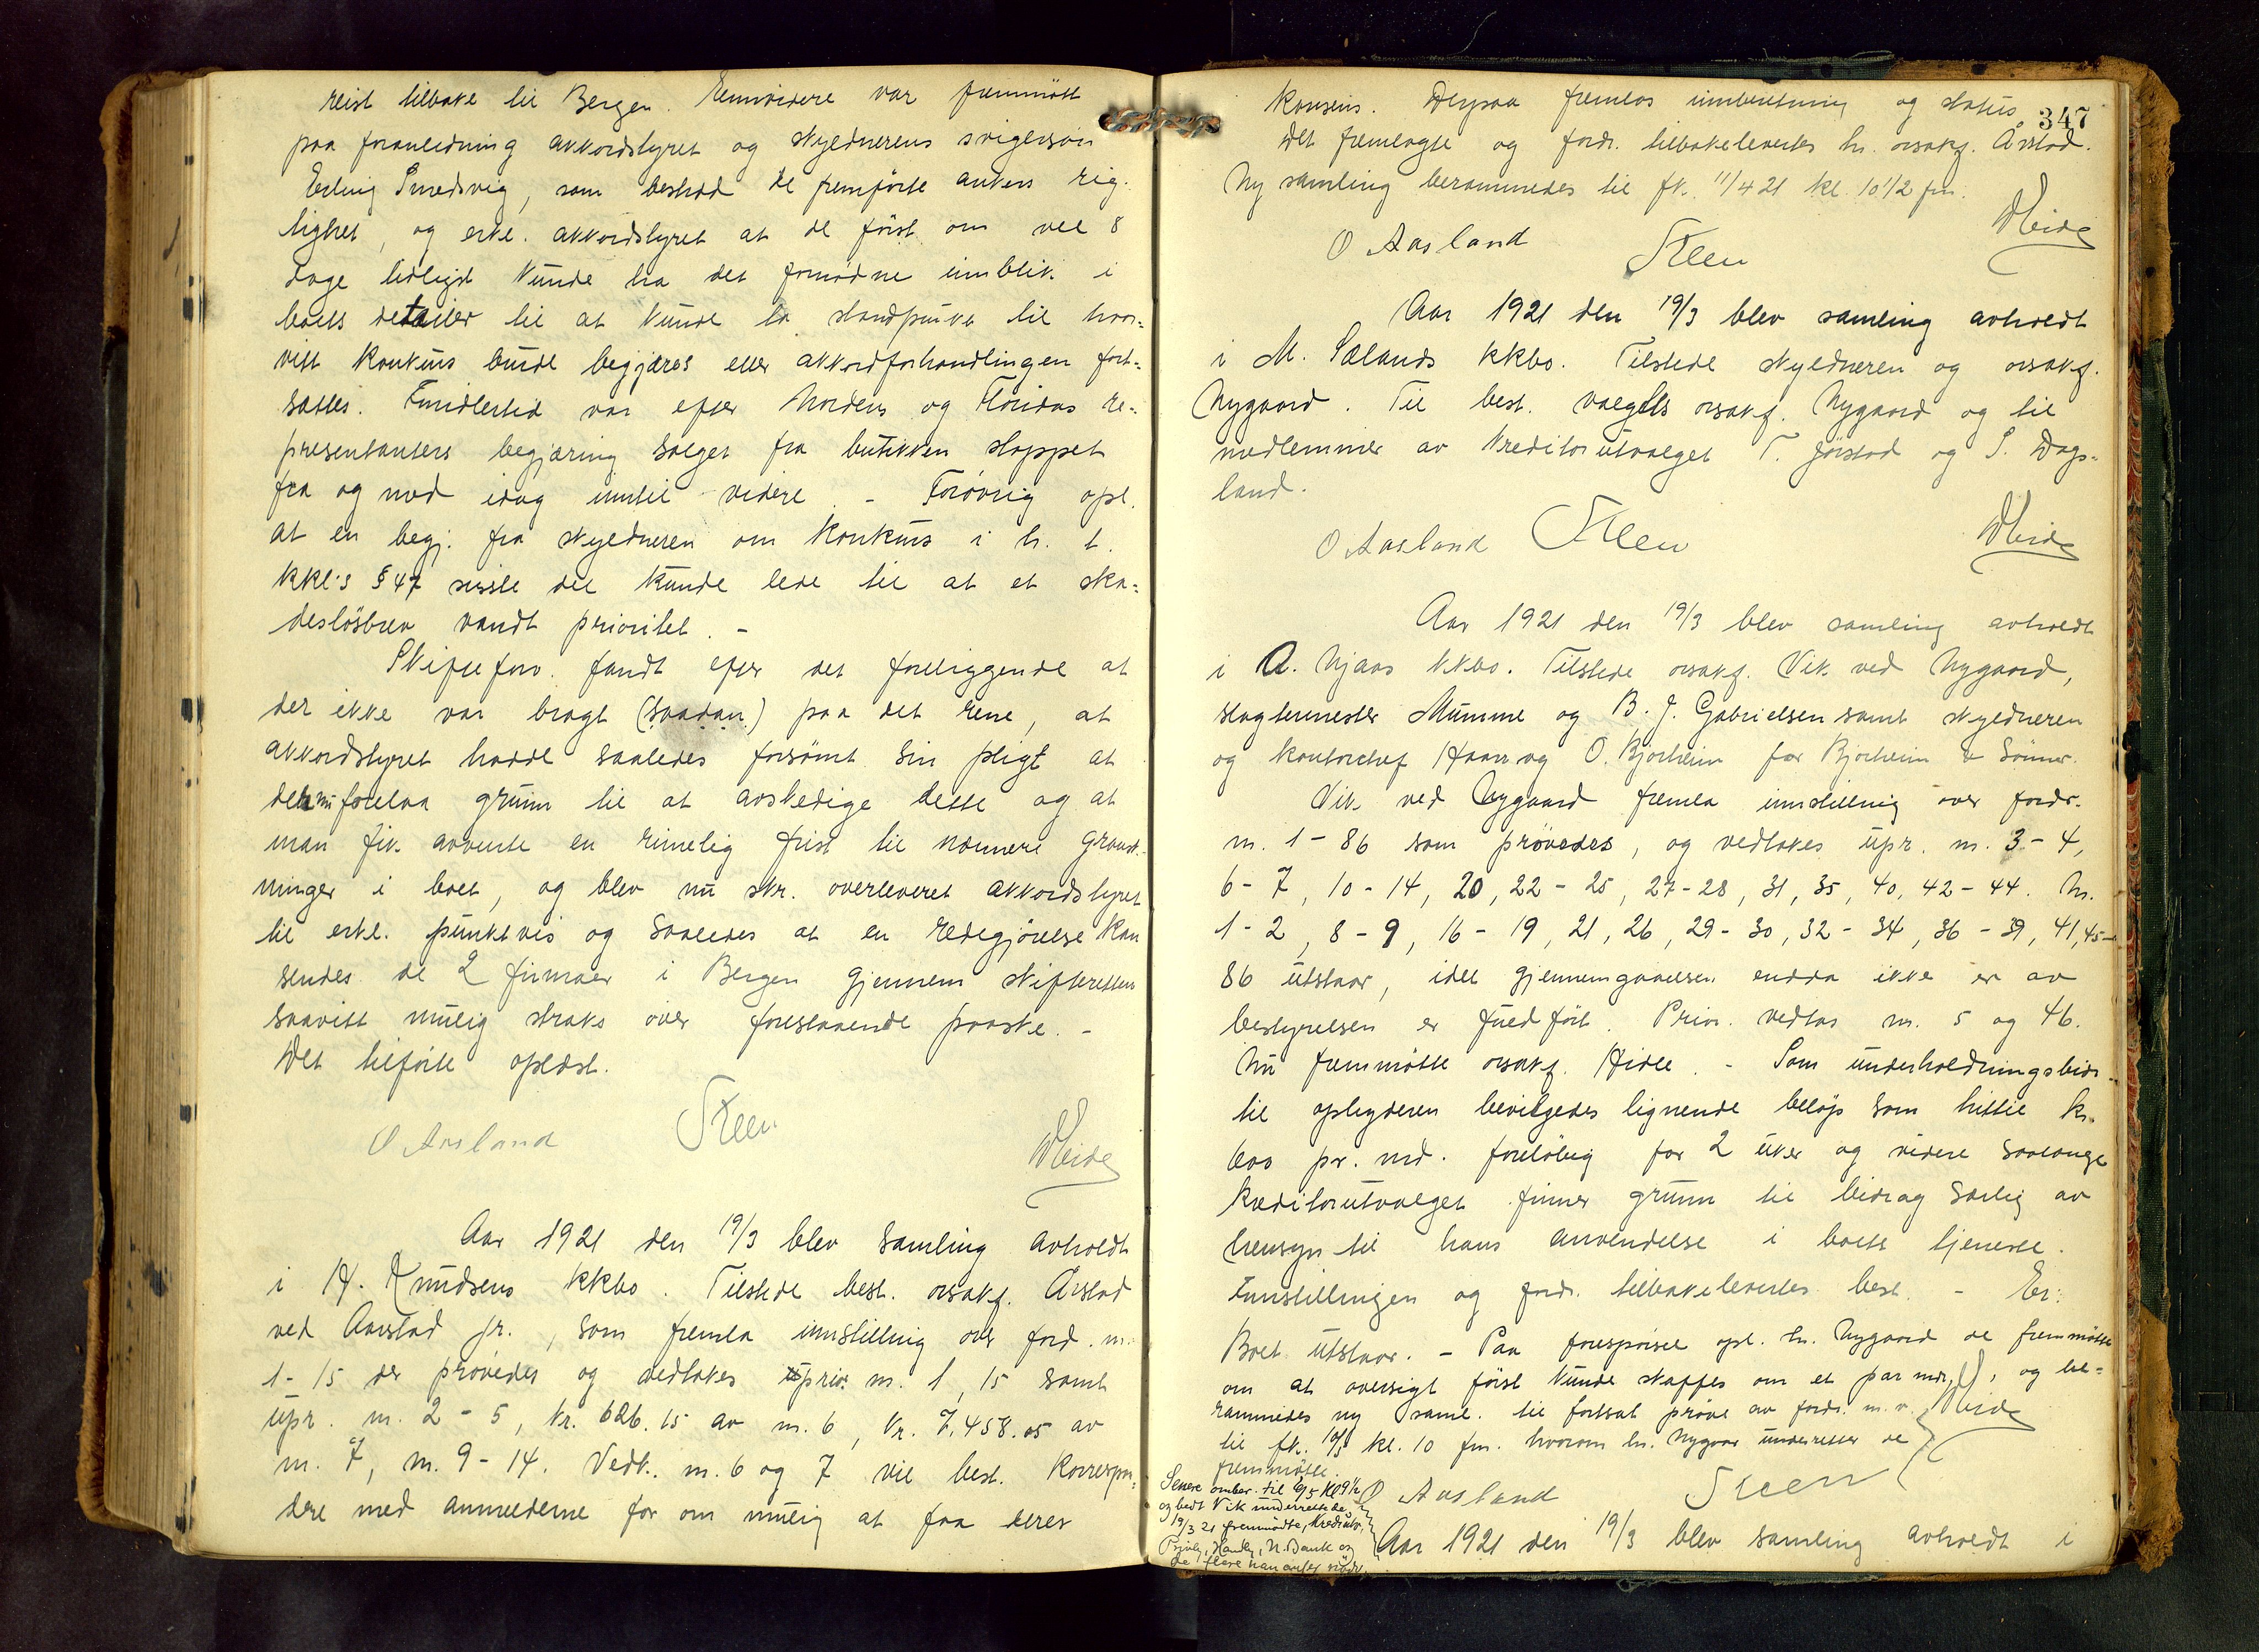 reist tilbake til Bergen. Ennvidere var fremmött
paa foranledning akkordstyret og skyldnerens svigersön
Erling Smedsvig, som bestred de fremförte ankers rig-
tighet, og erkl. akkordstyret at de först om vel 8
dage tidligst kunde ha det fornödne innblik i
boets detailer til at kunde ta standpunkt til hvor-
vitt konkurs burde begjæres eller akkordforhandlingen fort-
sættes. Imidlertid var efter Nordens og Floridas re-
presentanters begjæring salget fra butikken stoppet
fra og med idag inntil videre. - Forövrig opl.
at en begj. fra skyldneren om konkurs i h. t.
kkl's § 47 sidste del kunde lede til at et ska-
deslösbrev vandt prioritet. -
Skifteforv. fandt efter det foreliggende at
der ikke var bragt (saadan) paa det rene, at
akkordstyret hadde saaledes forsömt sin pligt at
der nu forelaa grunn til at avskedige dette og at
man fik avvente en rimelig frist til nærmere gransk-
ninger i boet, og blev nu skr. overleveret akkordstyret
til erkl. punktvis og saaledes at en redegjörelse kan
sendes de 2 firmaer i Bergen gjennem skifteretten
saavitt mulig straks over forestaaende paaske. -
Det tilförte oplæst.
O Aasland Steen
Aar 1921 den 19/3 blev samling avholdt
i H. Knudsens kkbo. Tilstede best. orsakf. Årstad
ved Aarstad jr., som fremla innstilling over ford. nr.
1-15 der prövedes og vedtokes prior nr. 1, 15 samt
upr. nr. 2-5, kr. 626.15 av nr. 6, kr. 7.458.05 av
nr. 7, nr. 9-14. Vedk. nr. 6 og 7 vil best. korrespon-
dere med anmelderne for om mulig at faa deres
347
konsens. Derpaa fremlas innberetning og status
Det fremlagte og fordr. tilbakelevertes hr. orsakf. Årstad.
Ny samling berammedes til fk. 11/4 21 kl. 10 1/2 fm.
O Aasland Steen
Aar 1921 den 19/3 blev samling avholdt
i M. Sælands kkbo. Tilstede skyldneren og orsakf.
Nygaard. Til best. valgtes orsakf. Nygaard og til
medlemmer av kreditorutvalget T. Jörstad og S. Dags-
land.
O Aasland Steen
Aar 1921 den 19/3 blev samling avholdt
i A. Njaas kkbo. Tilstede orsakf. Vik ved Nygaard,
slagtermester Mumme og B. J. Gabrielsen samt skyldneren
og kontorchef Haarr og O. Bjorheim for Bjorheim & Sönner.
Vik ved Nygaard fremla innstilling over fordr.
nr. 1-86 som prövedes, og vedtokes upr. nr. 3-4,
6-7, 10-14, 20, 22-25, 27-28, 31, 35, 40, 42-44. Nr.
1-2, 8-9, 16-19, 21, 26, 29-30, 32-34, 36-39, 41, 45-
86 utstaar, idet gjennemgaaelsen endda ikke er av
bestyrelsen er fuldfört. Prior. vedtas nr. 5 og 46.
Nu fremmötte orsakf. Hidle. - Som underholdningsbidr.
til opbyderen bevilgedes lignende belöp som hittil kr.
600 pr. md. forelöbig for 2 uker og videre saalænge
kreditorutvalget finner grunn til bidrag særlig av
hensyn til hans anvendelse i boets tjeneste.
Innstillingen og fordr. tilbakelevertes best. - Er:
Boet utstaar. - Paa foresporsel opl. hr. Nygaard de fremmötte
om at oversigt först kunde skaffes om et par mdr., og be-
rammedes ny saml. til fortsat pröve av fordr. m. v.
til fk. kl. 10 fm. hvorom hr. Nygaar underretter de
fremmötte.
O Aasland Steen
Senere omber. til 6/5 kl 9 1/2
og bedt Vik underrette de
19/3 21 fremmödte, Kreditutv.,
Privb, Handb, N. Bank og
de flere han anser nödv.
Aar 1921 den 19/3 blev samling avholdt i